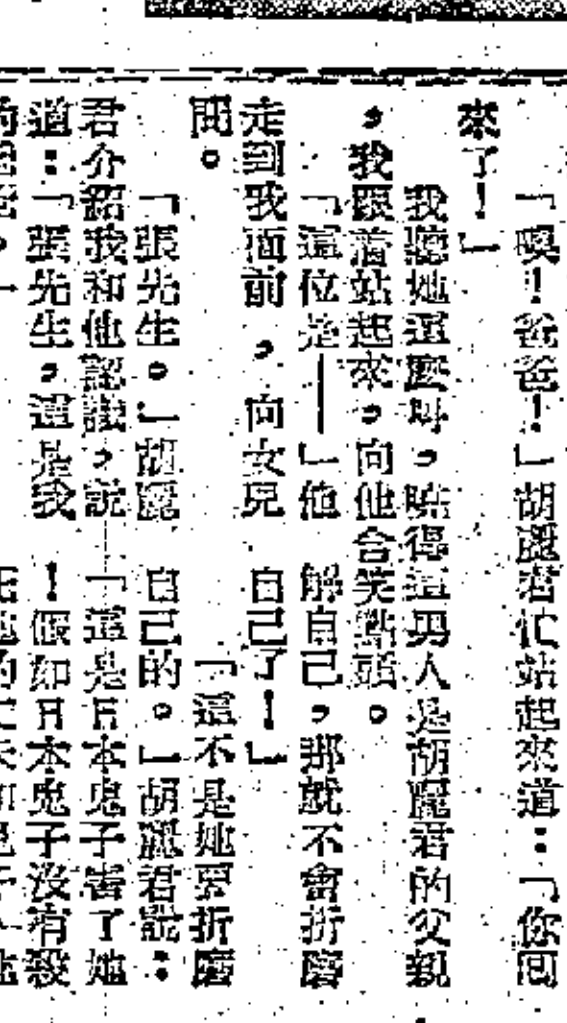 「噢！爸爸！」胡麗君忙站起來道：「你回
來了！」
我聽她這麼叫，曉得這男人是胡麗君的父親
，我跟着站起來，向他含笑點頭。
「這位是——」他
走到我面前，向女兒
問。
「張先生。」胡麗
君介紹我和他認識，說
道：「張先生，這是我
解自己，那就不會折磨
自己了！」
「這不是她要折磨
自己的。」胡麗君說：
「這是日本鬼子害了她
！假如日本鬼子沒有殺